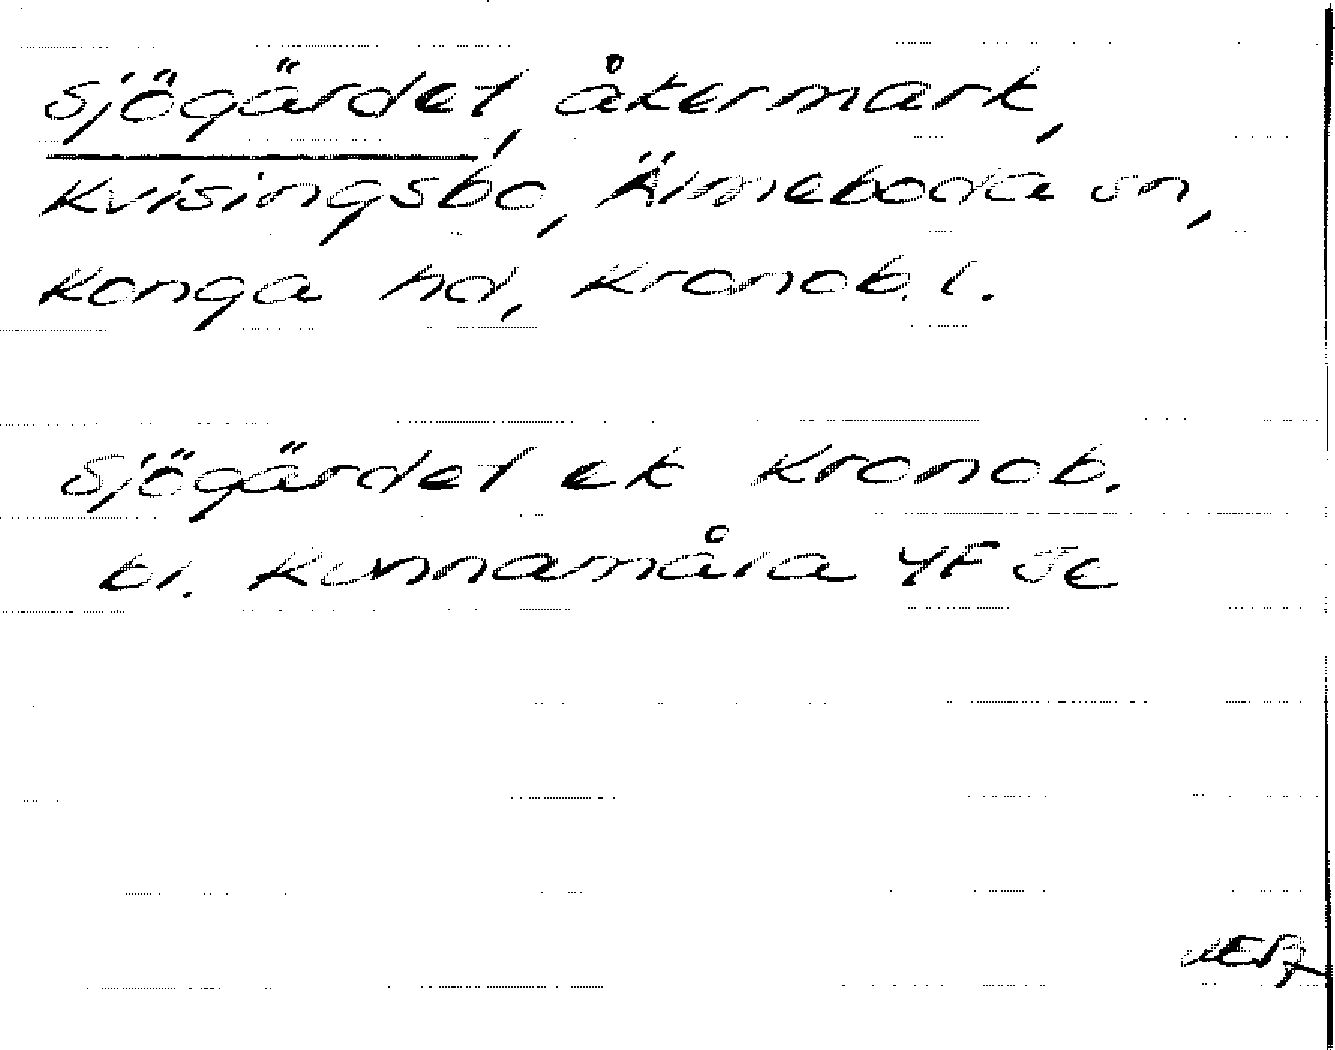 Sjögärdet, åkermark,
Kvisingsbo, Älmeboda sn,
Konga hd, Kronob. l.
Sjögärdet ek Kronob.
bl. Kunnamåla 4F Je